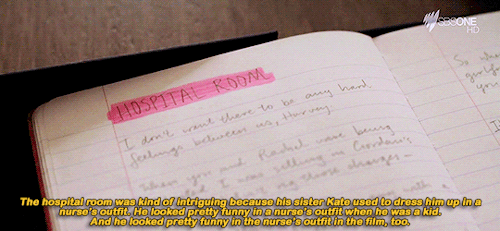 SBS ONE
HD
HOSPITAL ROOM
I don't want there to be any hard
feelings between us, Harvey.
When you and Rachel were being
sitting in Gordon's
those charges-
The hospital room was kind of intriguing because his sister Kate used to dress him up in a
nurse's outfit. He looked pretty funny in a nurse's outfit when he was a kid.
And he looked pretty funny in the nurse's outfit in the film, too.